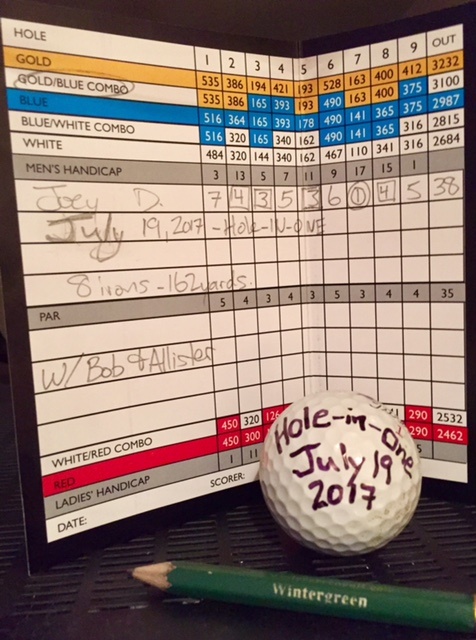 HOLE 1 2 3 4 5 6 7 8 9 OUT
GOLD 535 386 194 421 193 528 163 400 412 3232
GOLD/BLUE COMBO 535 386 165 393 193 490 163 400 375 3100
BLUE 516 364 165 393 178 490 141 365 375 2987
BLUE/WHITE COMBO 516 320 165 340 162 490 141 365 316 2815
WHITE 484 320 144 340 162 467 110 341 316 2684
MEN'S HANDICAP 3 13 5 7 11 9 17 15 1
Joey D. 7 4 3 5 3 6 1 4 5 38
July 19, 2017 - Hole-IN-ONE
8 irons - 162 yards.
PAR 5 4 3 4 3 5 3 4 4 35
W/ Bob & Allister
WHITE/RED COMBO 450 320 126 290 2532
RED 450 300 290 2462
LADIES' HANDICAP 1 11
SCORER:
DATE:
Hole-in-One
July 19
2017
Wintergreen